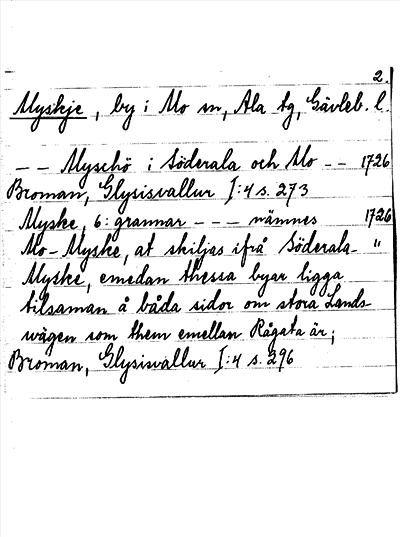 2.
Myskje, by i Mo sn, Ala tg, Gävleb. l.
-- Myschö i Söderala och Mo -- 1726
Broman, Glysisvallur I:4 s. 273
Myske, 6: grannar --- nämnes 1726
Mo-Myske, at skiljas ifrå Söderala- "
Myske, emedan thessa byar ligga
tilsaman å båda sidor om stora Lands-
wägen som them emellan Rågata är;
Broman, Glysisvallur I:4 s. 296